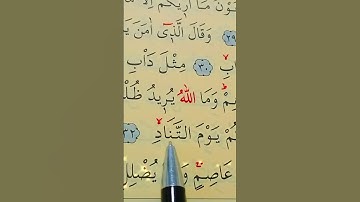 مَا أُرِيكُمْ إِلَّا
﴿٢٩﴾ وَقَالَ الَّذِي آمَنَ يَا
﴿٣٠﴾ مِثْلَ دَأْبِ
وَمَا اللّٰهُ يُرِيدُ ظُلْ
يَوْمَ التَّنَادِ ﴿٣٢﴾
عَاصِمٍ وَ يُضْلِلِ